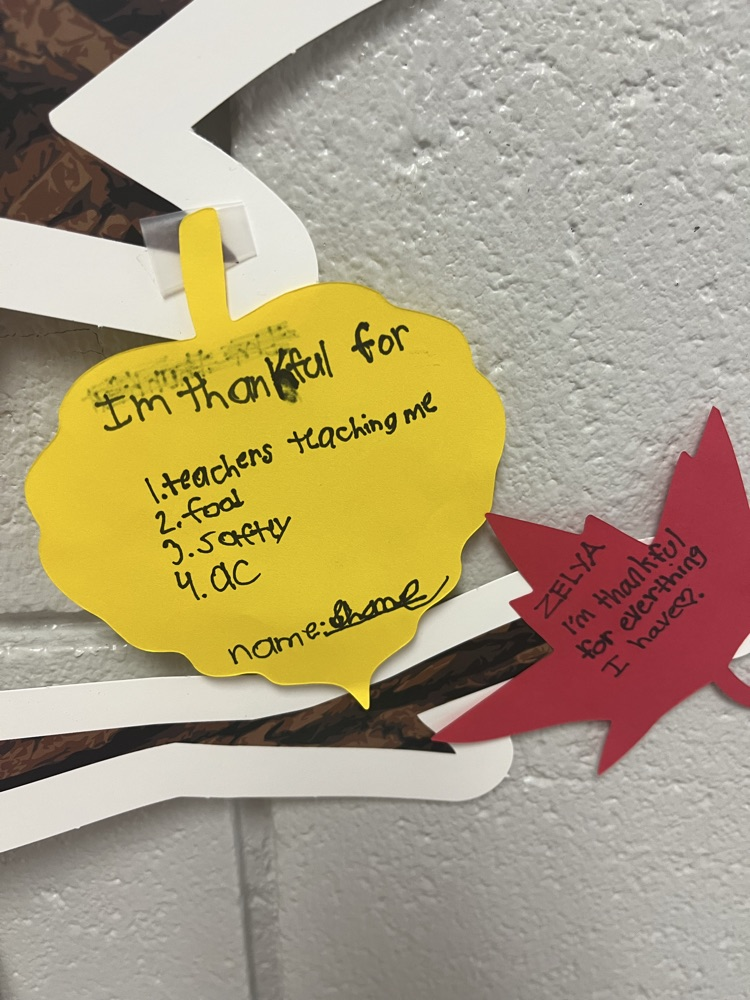 Im thankful for
1. teachers teaching me
2. food
3. Saftey
4. ac
name:
ZELYA
I'm thankful
for everthing
I have♡.